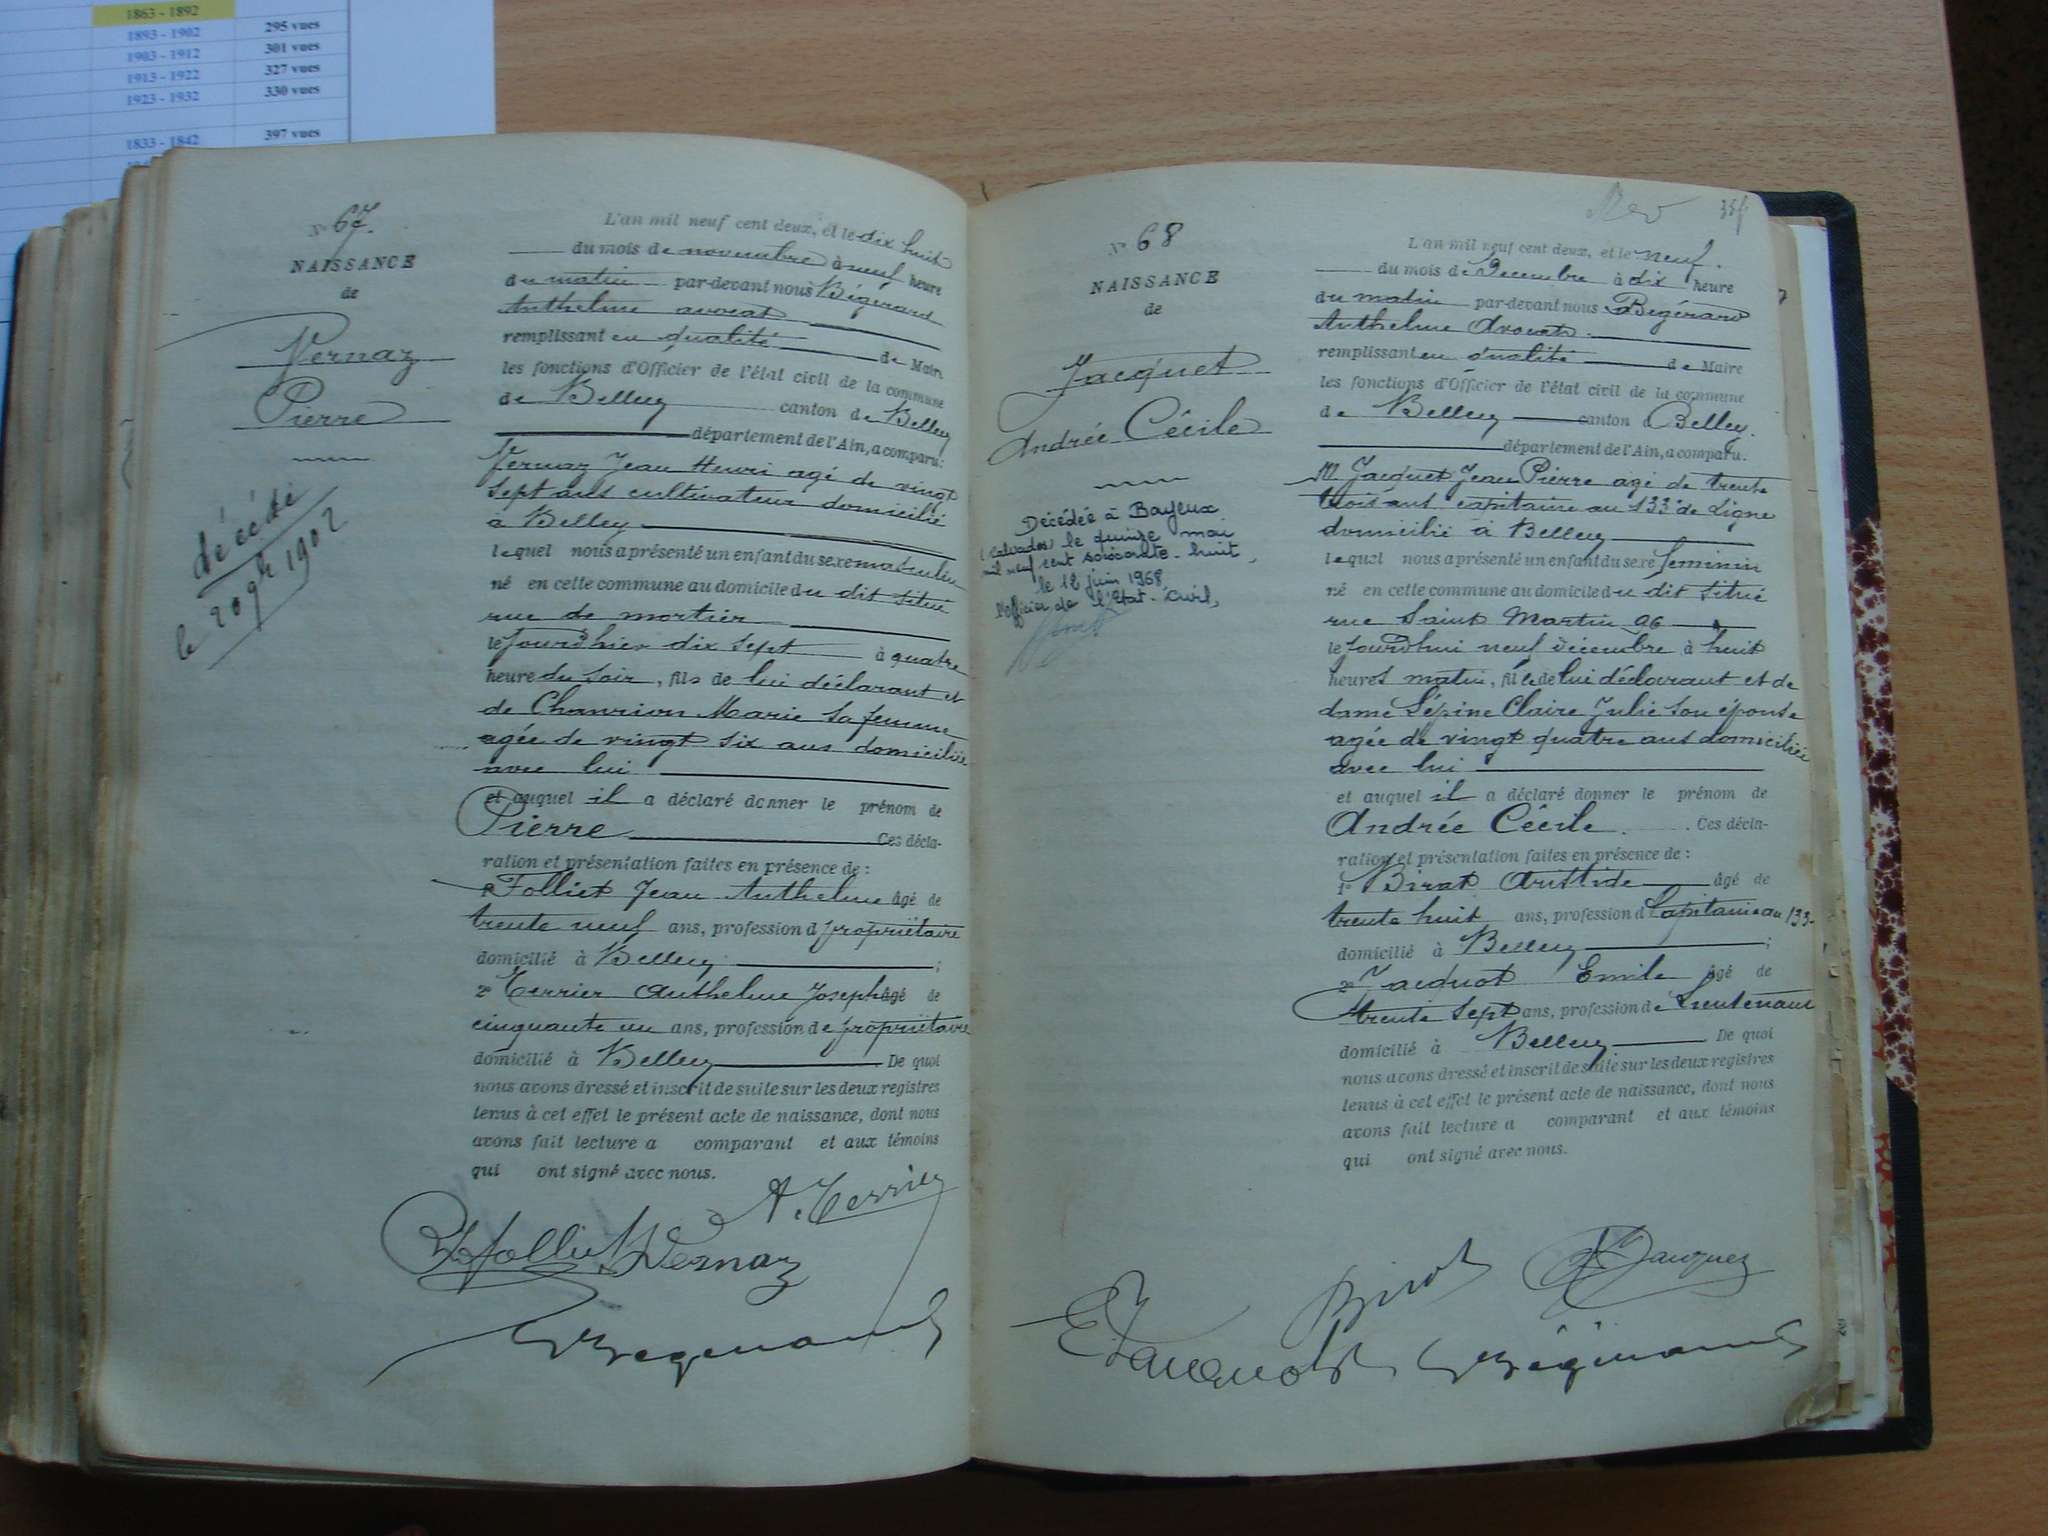 1863 - 1892
1893 - 1902 295 vues
1903 - 1912 301 vues
1913 - 1922 327 vues
1923 - 1932 330 vues
1833 - 1842 397 vues
N° 67.
NAISSANCE
de
Vernaz
Pierre
décédé
le 20 9bre 1902
L'an mil neuf cent deux, et le dix huit
du mois de novembre à neuf heure
du matin par-devant nous Bégerard
Anthelme avocat
remplissant en qualité de Maire
les fonctions d'Officier de l'état civil de la commune
de Belley canton de Belley
département de l'Ain, a comparu:
Vernaz Jean Henri agé de vingt
sept ans cultivateur domicilié
à Belley
lequel nous a présenté un enfant du sexe masculin
né en cette commune au domicile du dit situé
rue de mortier
le jour d'hier dix sept à quatre
heure du soir, fils de lui déclarant et
de Chanrion Marie sa femme
agée de vingt six ans domiciliée
avec lui
et auquel il a déclaré donner le prénom de
Pierre Ces décla-
ration et présentation faites en présence de :
1° Folliet Jean Anthelme âgé de
trente neuf ans, profession d propriétaire
domicilié à Belley ;
2° Terrier Anthelme Joseph âgé de
cinquante un ans, profession de propriétaire
domicilié à Belley De quoi
nous avons dressé et inscrit de suite sur les deux registres
tenus à cet effet le présent acte de naissance, dont nous
avons fait lecture a comparant et aux témoins
qui ont signé avec nous.
A. Terrier
Folliet Vernaz
Bégerard
N° 68
NAISSANCE
de
Jacquet
Andrée Cécile
Décédée à Bayeux
(Calvados) le quinze mai
mil neuf cent soixante-huit,
le 12 juin 1968
l'officier de l'Etat-Civil,
L'an mil neuf cent deux, et le neuf.
du mois de Décembre à dix heure
du matin par-devant nous Bégérard
Anthelme Avocat
remplissant en qualité de Maire
les fonctions d'Officier de l'état civil de la commune
de Belley canton d Belley.
département de l'Ain, a comparu.
M. Jacquet Jean Pierre agé de trente
trois ans capitaine au 133e de Ligne
domicilié à Belley
lequel nous a présenté un enfant du sexe feminin
né en cette commune au domicile du dit situé
rue Saint Martin 26
le jourd'hui neuf décembre à huit
heures matin, fille de lui déclarant et de
dame Lépine Claire Julie son épouse
agée de vingt quatre ans domiciliée
avec lui
et auquel il a déclaré donner le prénom de
Andrée Cécile. Ces décla-
ration et présentation faites en présence de :
1° Birat Aristide âgé de
trente huit ans, profession d Capitaine au 133
domicilié à Belley ;
2° Jacquot Emile âgé de
trente sept ans, profession de Lieutenant
domicilié à Belley De quoi
nous avons dressé et inscrit de suite sur les deux registres
tenus à cet effet le présent acte de naissance, dont nous
avons fait lecture a comparant et aux témoins
qui ont signé avec nous.
Birat Jacquet
E Jacquot Bégérard